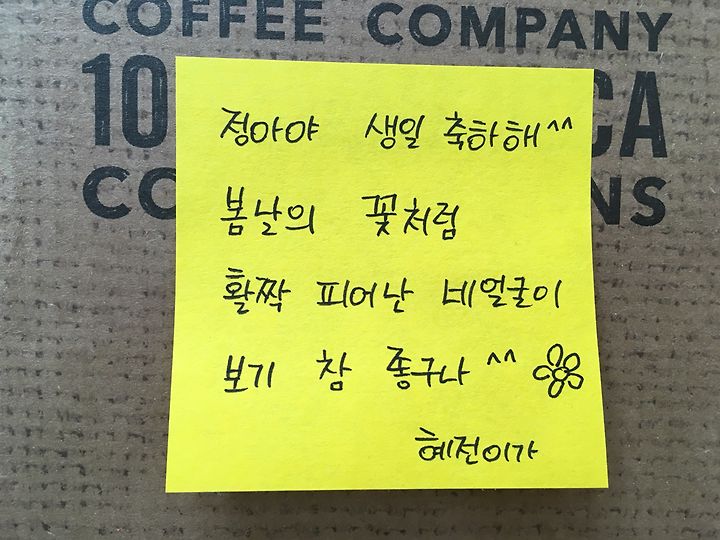 COFFEE COMPANY
10 CA
CO NS
정아야 생일 축하해^^
봄날의 꽃처럼
활짝 피어난 네얼굴이
보기 참 좋구나 ^^
혜전이가